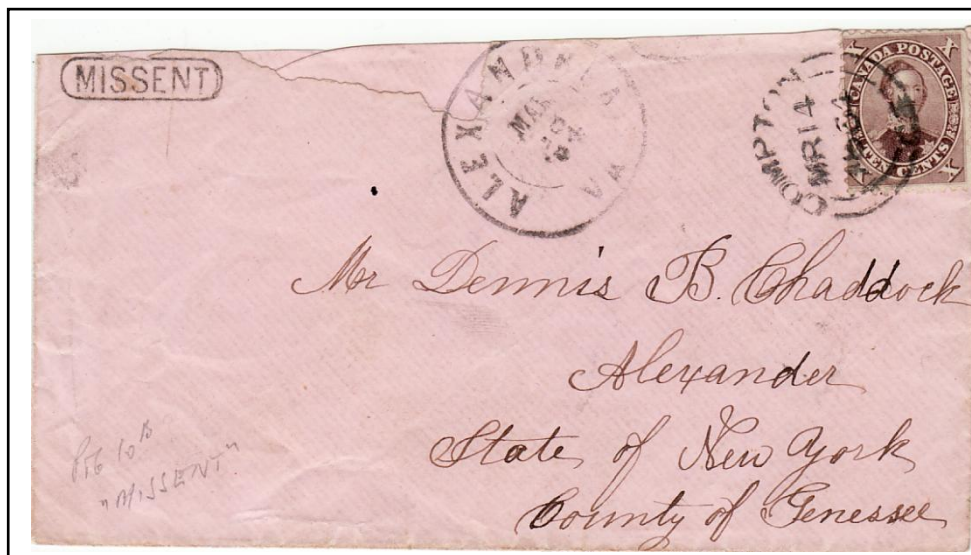 MISSENT
ALEXANDRIA
VA
COMPTON
MR 14
64
X
X
CANADA POSTAGE
X
X
Mr Dennis B. Chaddock
Alexander
State of New York
County of Genessee
10
"MISSENT"